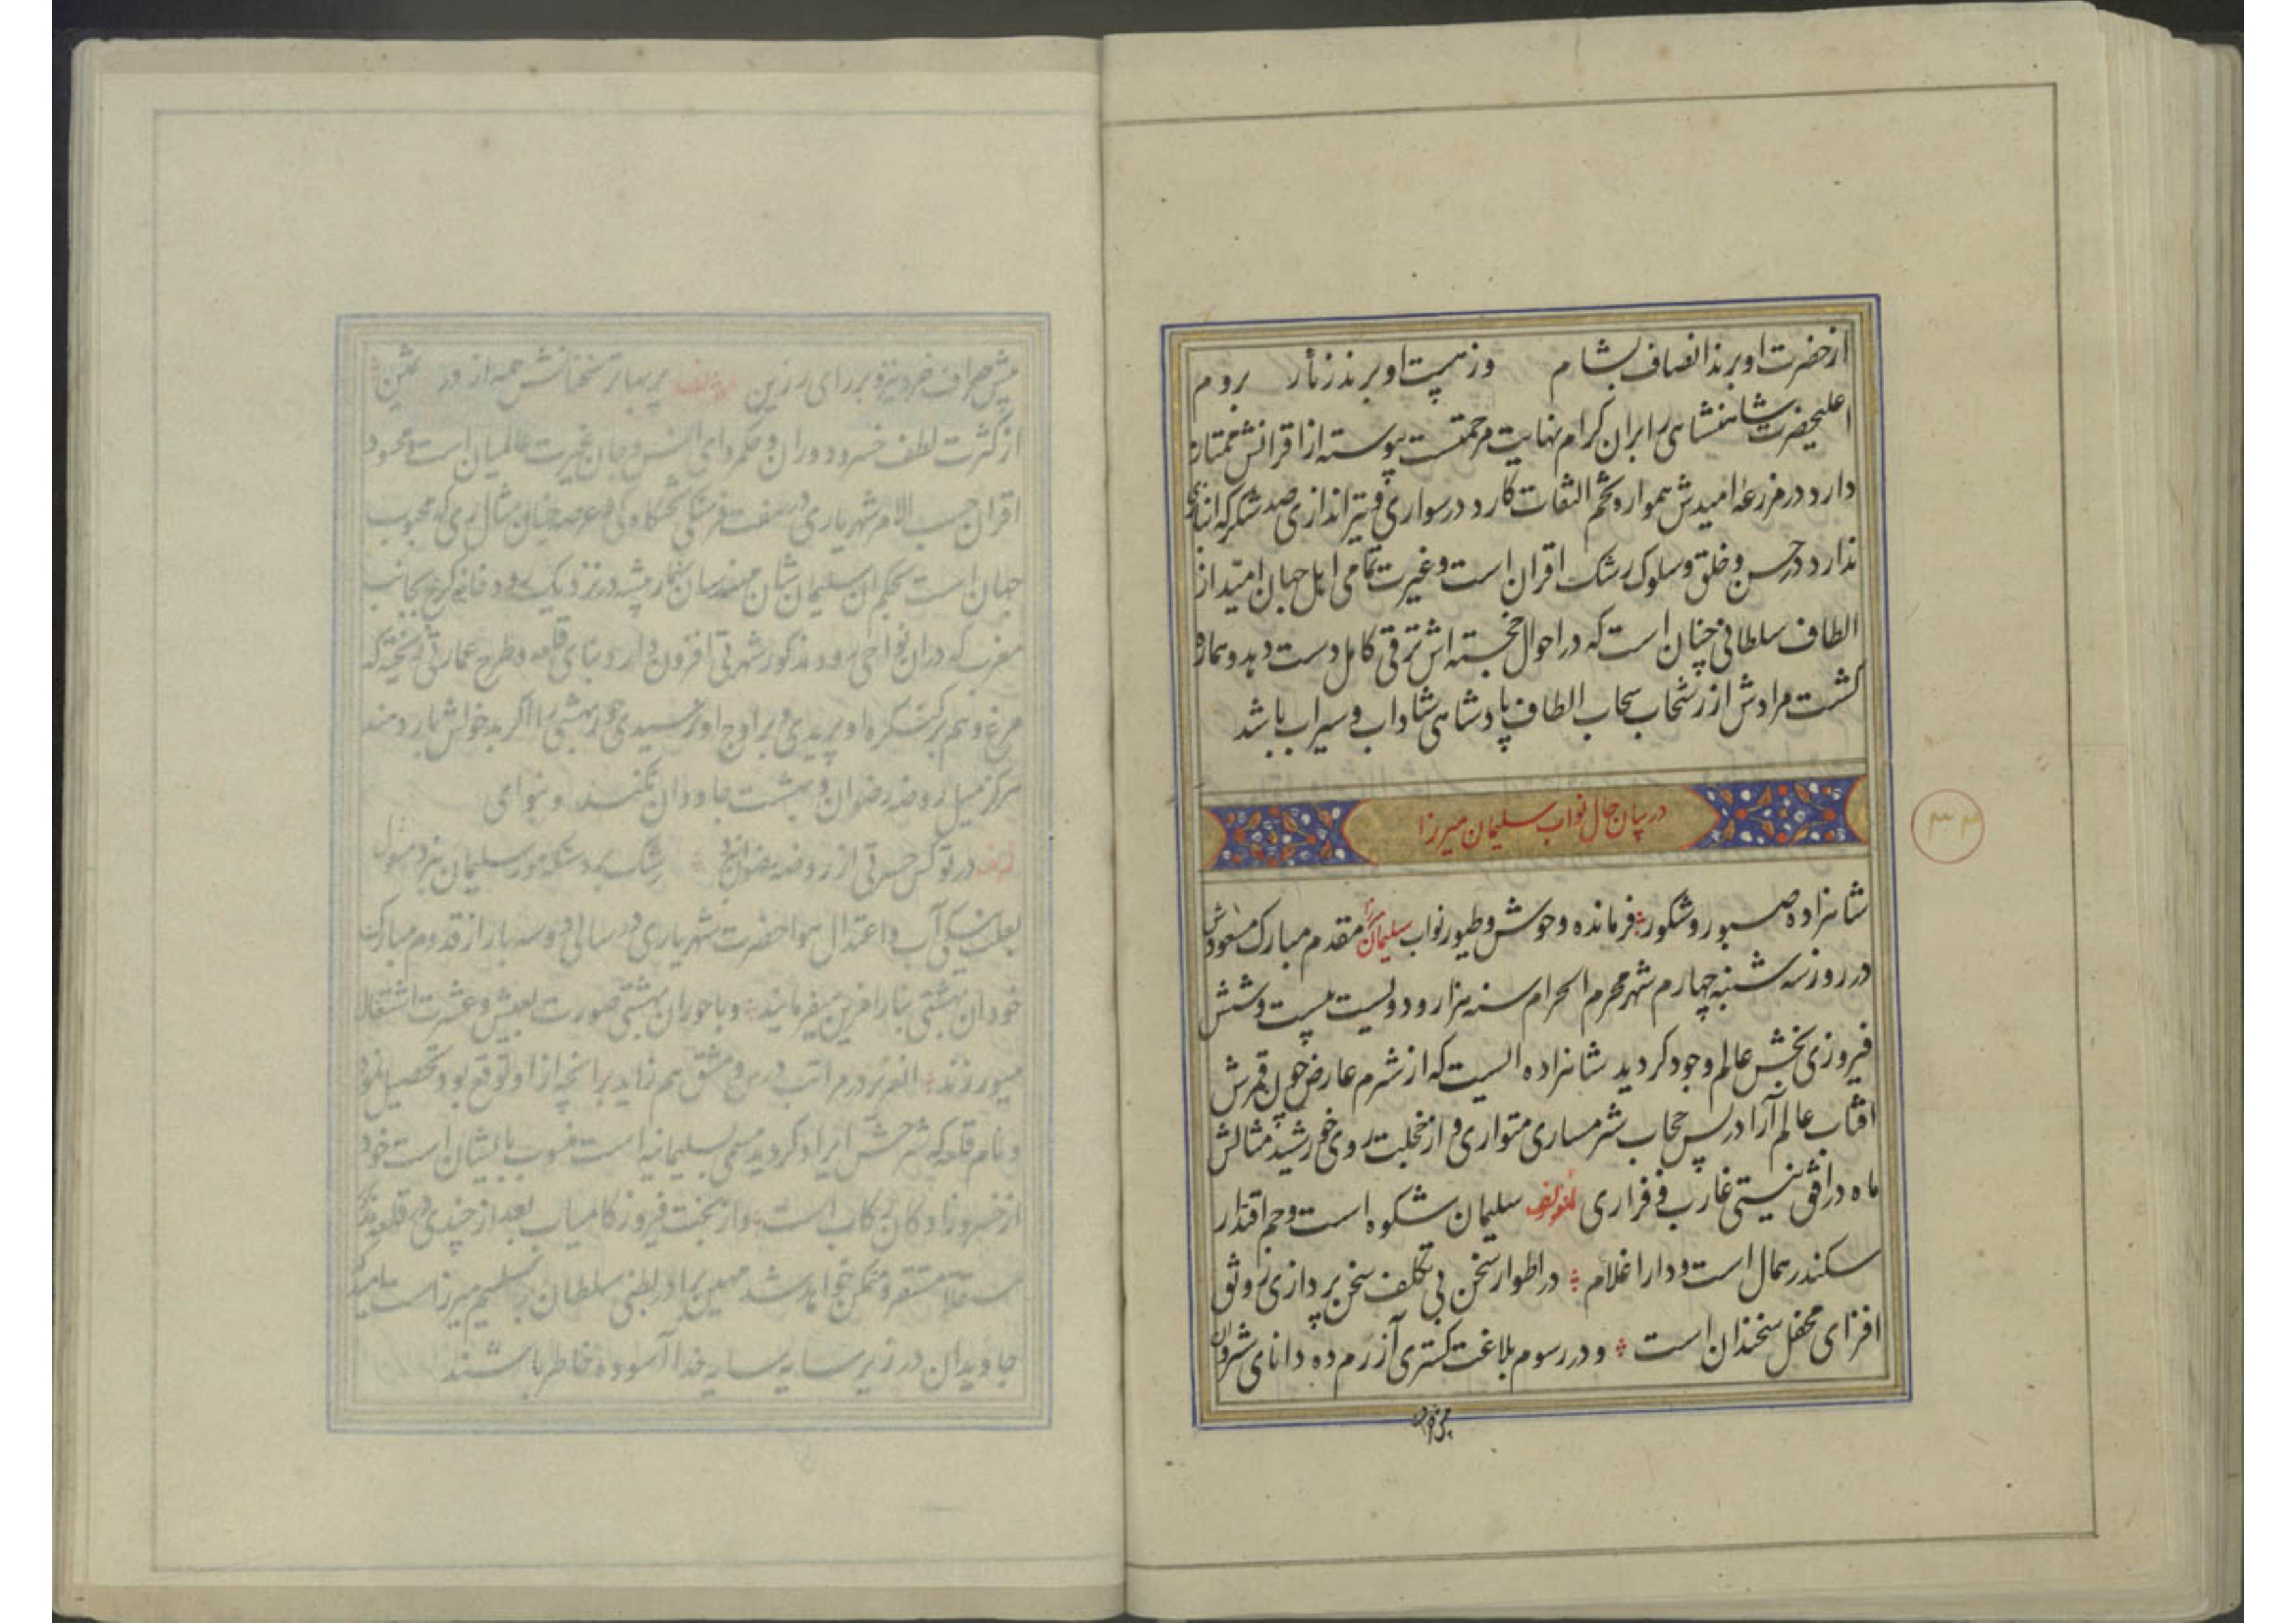 از حضرت او برند انصاف بشام وز هیبت او برند زنار بروم
اعلیحضرت شاهنشاهی را بر ان کرام نهایت مرحمتست پیوسته از اقرانش ممتاز
دارد در مزرعهٔ امیدش همواره تخم التفات کارد در سواری و تیراندازی صد شکر که انبازی
ندارد در حسن و خلق و سلوک رشک اقران است و غیرت تمامی اهل جهان امید از
الطاف سلطانی چنان است که در احوال خجسته اش ترقی کامل دست دهد و هماره
کشت مرادش از رشحات سحاب الطاف پادشاهی شاداب و سیراب باشد
در بیان حال نواب سلیمان میرزا
۳۴
شاهزاده صبور و شکور فرمانده وحوش و طیور نواب سلیمان میرزا مقدم مبارک مسعودش
در روز سه شنبه چهارم شهر محرم الحرام سنه هزار و دویست بیست و شش
فیروزی بخش عالم وجود کردید شاهزاده ایست که از شرم عارض چون قمرش
افتاب عالم آرا در پس حجاب شرمساری متواری و از خجلت روی خورشید مثالش
ماه در افق نیستی غارب و فراری لمؤلفه سلیمان شکوه است و جم اقتدار
سکندر همال است و دارا غلام در اطوار سخن بی تکلف سخن پردازی رونق
افزای محفل سخندان است و در رسوم بلاغت کستری آزرم ده دانای شروان
از کثرت لطف خسرو دوران و حکمروای انس و جان غیرت عالمیان است و محسود
اقران حسب الامر شهریاری در هفت فرسنگی
جهان است بحکم ان سلیمان شان مهندسان در نزدیک رودخانه کرج بجانب
مغرب که در ان نواحی رود مذکور شهرتی افزون دارد بنای قلعه و طرح عمارتی ریخته که
مرغ وهم بر کنکره او پریدی و بر اوج او رسیدی حور بهشتی را اکر بدخولش بار دهند
هرکز میل روضه رضوان و بهشت جاودان نکنند
رشک برد شکه مور سلیمان
آب و اعتدال هوا حضرت شهریاری در سالی دو سه بار از قدوم مبارک
خود ان بهشتی بنا را میفرمایند و با حوران بهشتی صورت بعیش و عشرت اشتغال
میورزند در مراتب درس و مشق هم زاید بر انچه از او توقع بود تحصیل نمود
و نام قلعه که شرحش ایراد کردید مسمی بسلیمانیه است منسوب بایشان است خود
از خسروزادکان رکاب است و از بخت فیروز کامیاب بعد از چندی در قلعه
مستقر و متمکن خواهد شد مهین برادر بطنی سلطان سلیم میرزاست
جاویدان در زیر سایه سایه خدا آسوده خاطر باشند